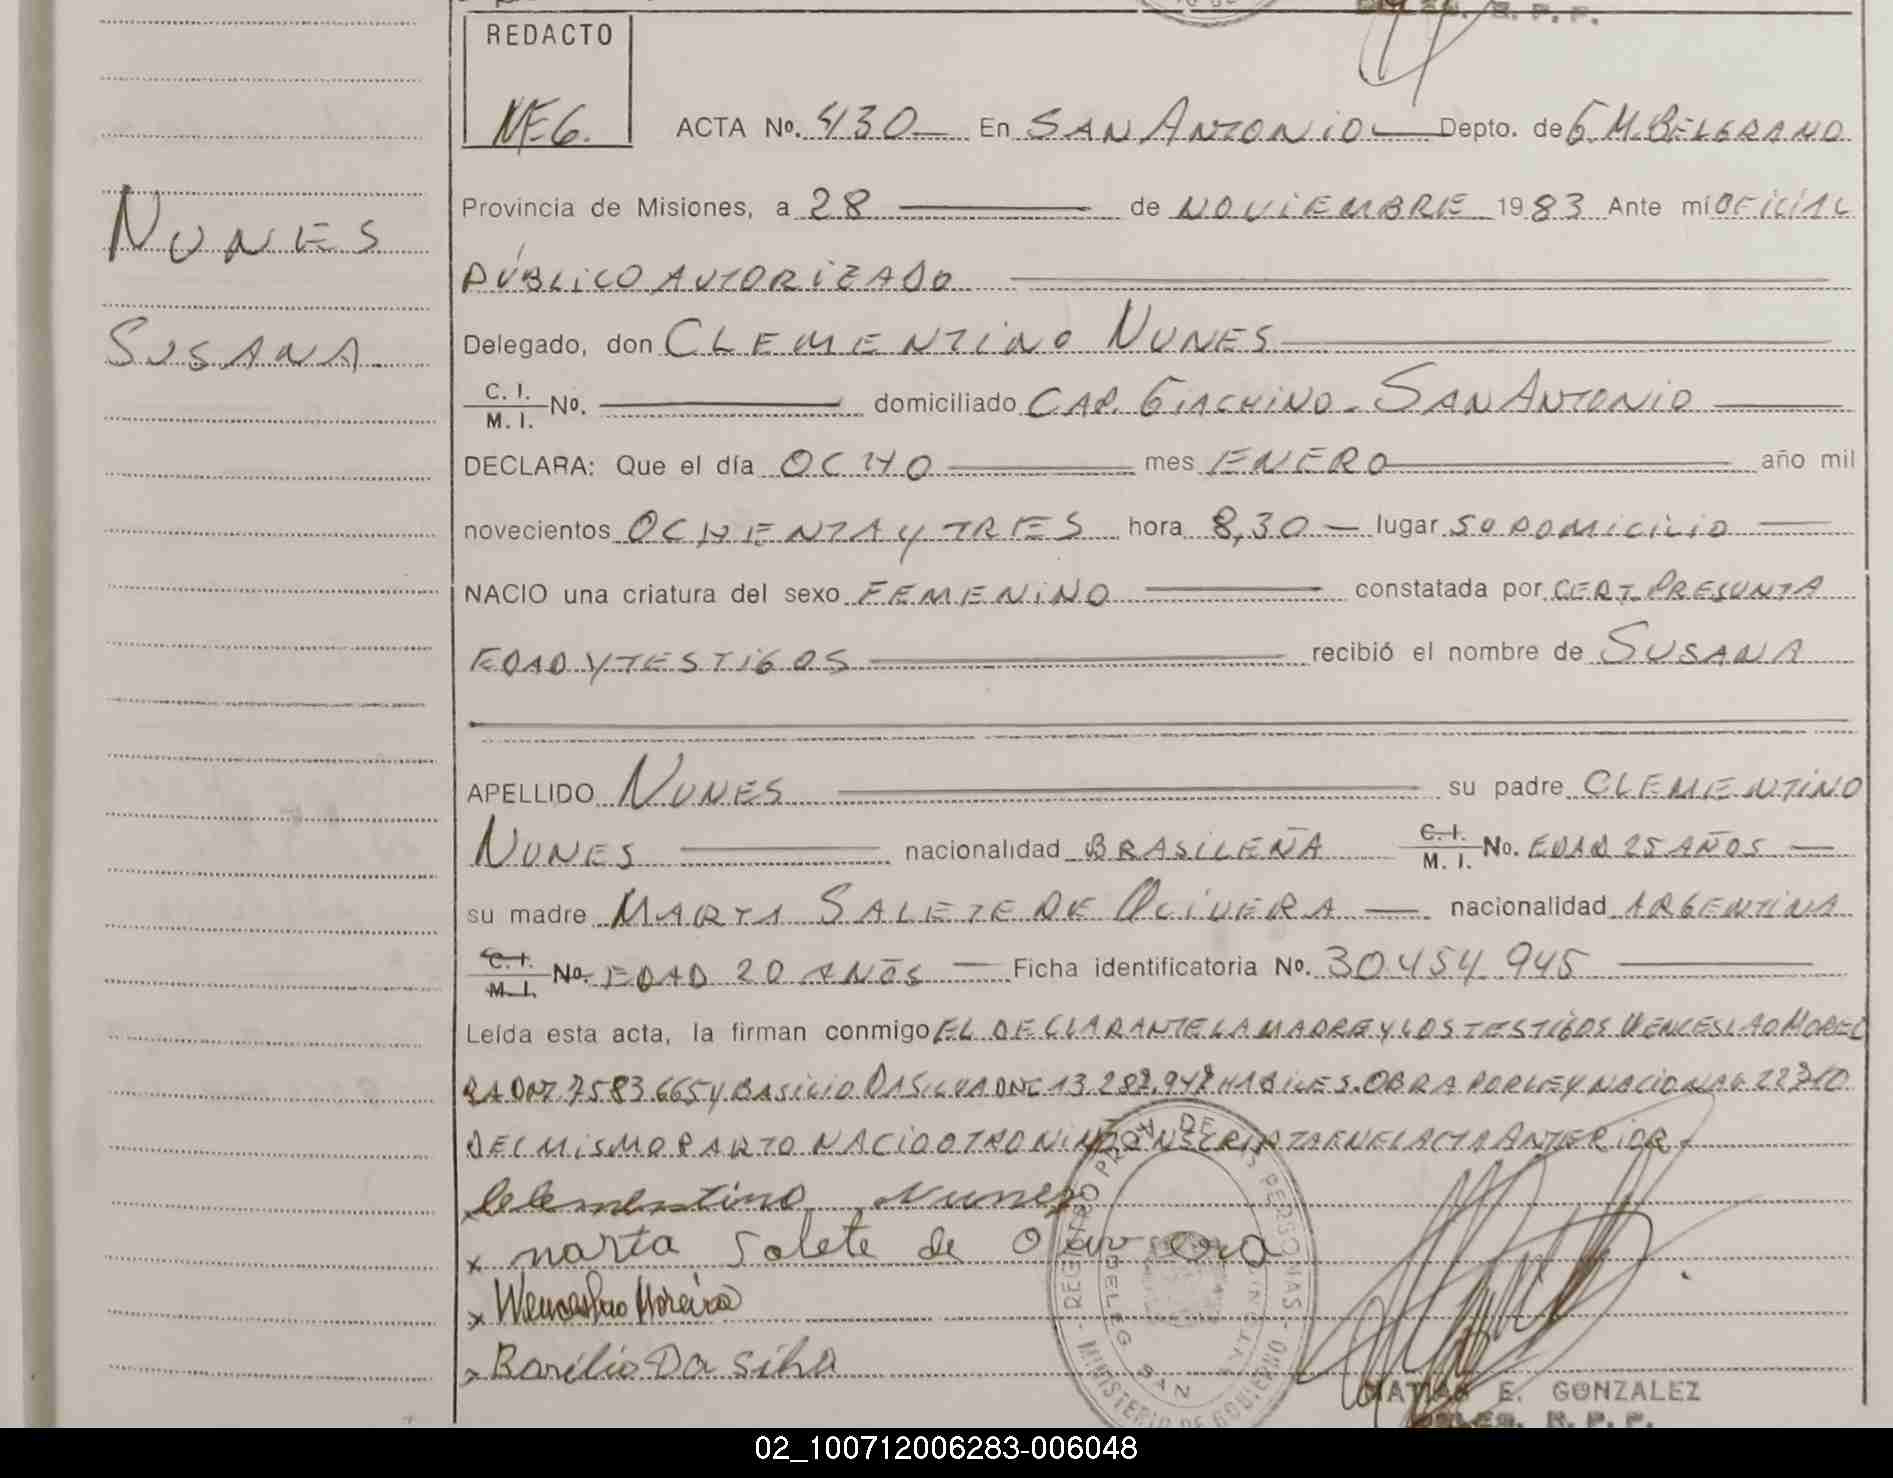 REDACTO
ACTA No. 430 En SAN ANTONIO Depto. de G. M. BELGRANO
Provincia de Misiones, a 28 de NOVIEMBRE 1983 Ante mí OFICIAL
NUNES
PÚBLICO AUTORIZADO
Delegado, don CLEMENTINO NUNES
SUSANA
C. I.
M. I. No. domiciliado CAP. GIACHINO - SAN ANTONIO
DECLARA: Que el día OCHO mes ENERO año mil
novecientos OCHENTA Y TRES hora 8,30 lugar SU DOMICILIO
NACIO una criatura del sexo FEMENINO constatada por CERT. PRESUNTA
EDAD Y TESTIGOS recibió el nombre de SUSANA
APELLIDO NUNES su padre CLEMENTINO
NUNES nacionalidad BRASILEÑA C. I. M. I. No. EDAD 25 AÑOS
su madre MARTA SALETE DE OLIVERA nacionalidad ARGENTINA
C. I. M. I. No. EDAD 20 AÑOS Ficha identificatoria No. 30.454.945
Leída esta acta, la firman conmigo EL DECLARANTE LA MADRE Y LOS TESTIGOS WENCESLAO MOREI
RA DNI 7583665 Y BASILIO DA SILVA DNI 13.282.948 HABILES. OBRA POR LEY NACIONAL 22310
DEL MISMO PARTO NACIO OTRO NIÑO INSCRIPTA EN EL ACTA ANTERIOR
Clementino Nunes
x marta Salete de Oliveira
x Wenceslao Moreira
x Basilio Da Silva
REGISTRO PROV. DE LAS PERSONAS
MINISTERIO DE GOBIERNO
DELEG. SAN ANTONIO
MATIAS E. GONZALEZ
DELEG. R. P. P.
02_100712006283-006048